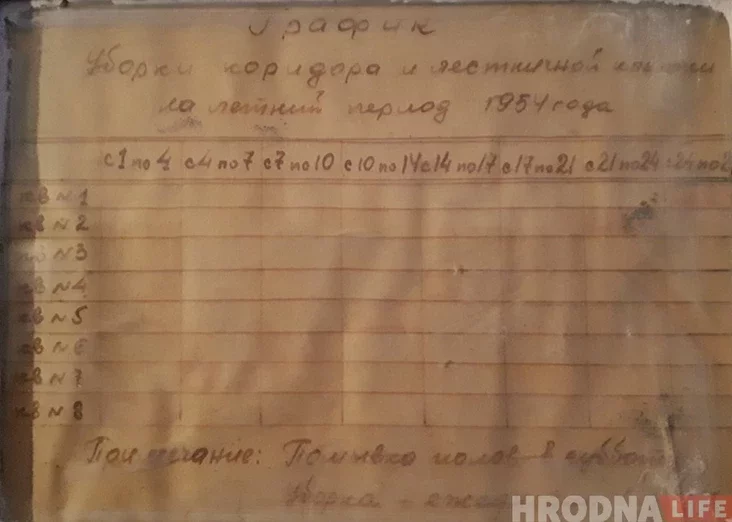 График
Уборки коридора и лестничной клетки
на летний период 1954 года
с 1 по 4 с 4 по 7 с 7 по 10 с 10 по 14 с 14 по 17 с 17 по 21 с 21 по 24 с 24 по 2
кв №1
кв №2
кв №3
кв №4
кв №5
кв №6
кв №7
кв №8
Примечание: Помывка полов в суббот
Уборка -
HRODNA LIFE